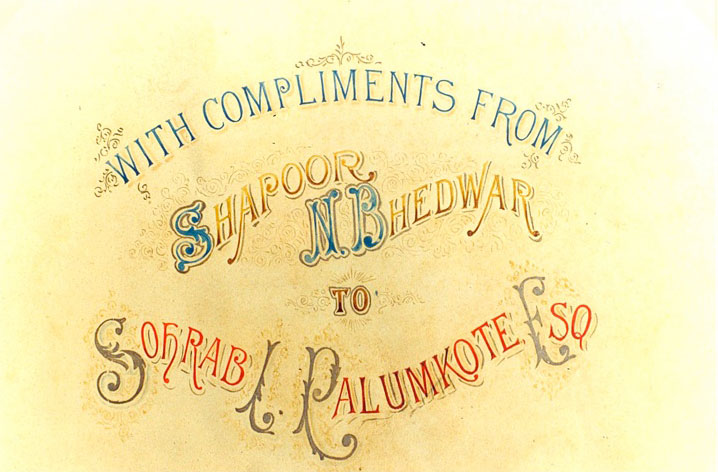 WITH COMPLIMENTS FROM
SHAPOOR N. BHEDWAR
TO
SOHRAB I. PALUMKOTE ESQ